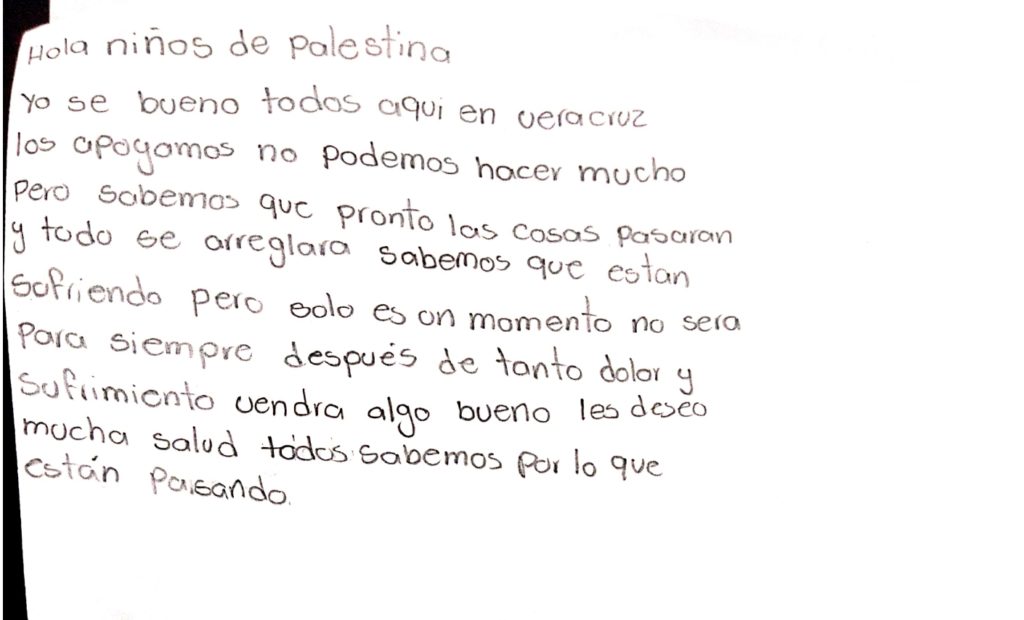 Hola niños de palestina
Yo se bueno todos aqui en veracruz
los apoyamos no podemos hacer mucho
Pero sabemos que pronto las cosas pasaran
y todo se arreglara sabemos que estan
Sofriendo pero solo es un momento no sera
Para siempre después de tanto dolor y
Sufrimiento vendra algo bueno les deseo
mucha salud todos sabemos por lo que
están pasando.